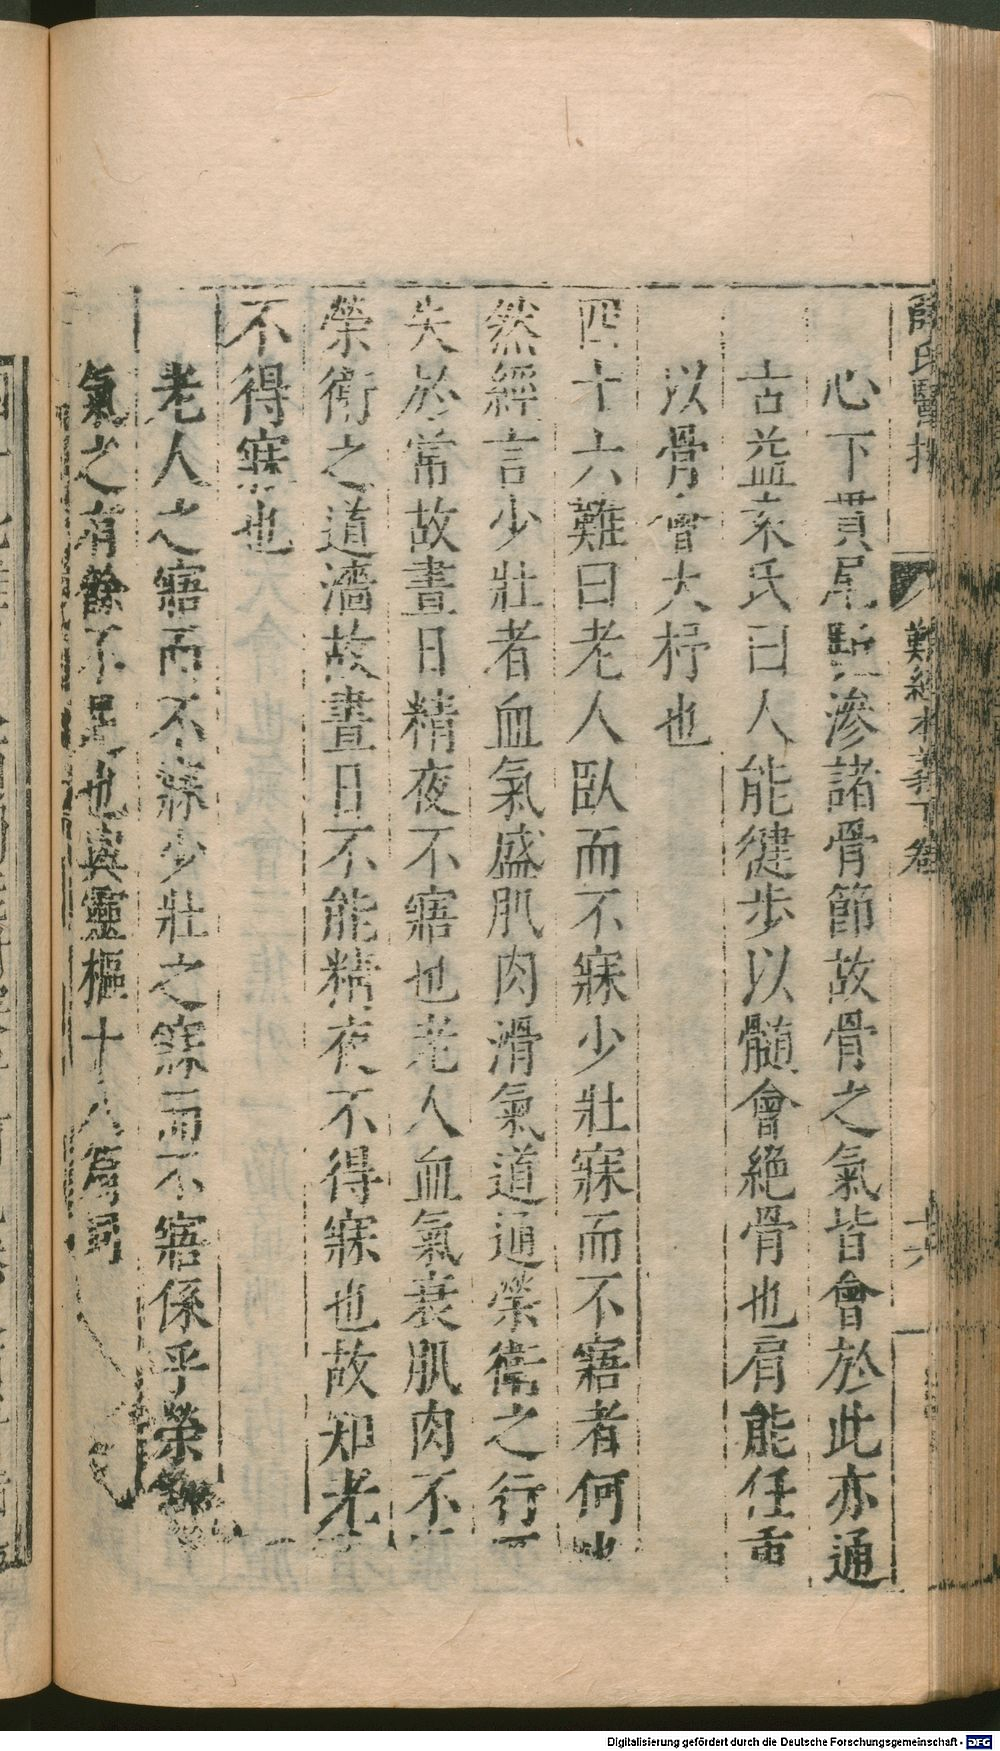 薛氏醫按 難經本義下卷 十六
心下貫尻 滲諸骨節故骨之氣皆會於此亦通
古益袁氏曰人能健步以髓會絶骨也肩能任重
以骨會大杼也
四十六難曰老人臥而不寐少壯寐而不寤者何也
然經言少壯者血氣盛肌肉滑氣道通榮衛之行不
失於常故晝日精夜不寤也老人血氣衰肌肉不
榮衛之道濇故晝日不能精夜不得寐也故知老
不得寐也
老人之寤而不寐少壯之寐而不寤係乎榮
氣之有餘不足也與靈樞十八篇同
Digitalisierung gefördert durch die Deutsche Forschungsgemeinschaft - DFG